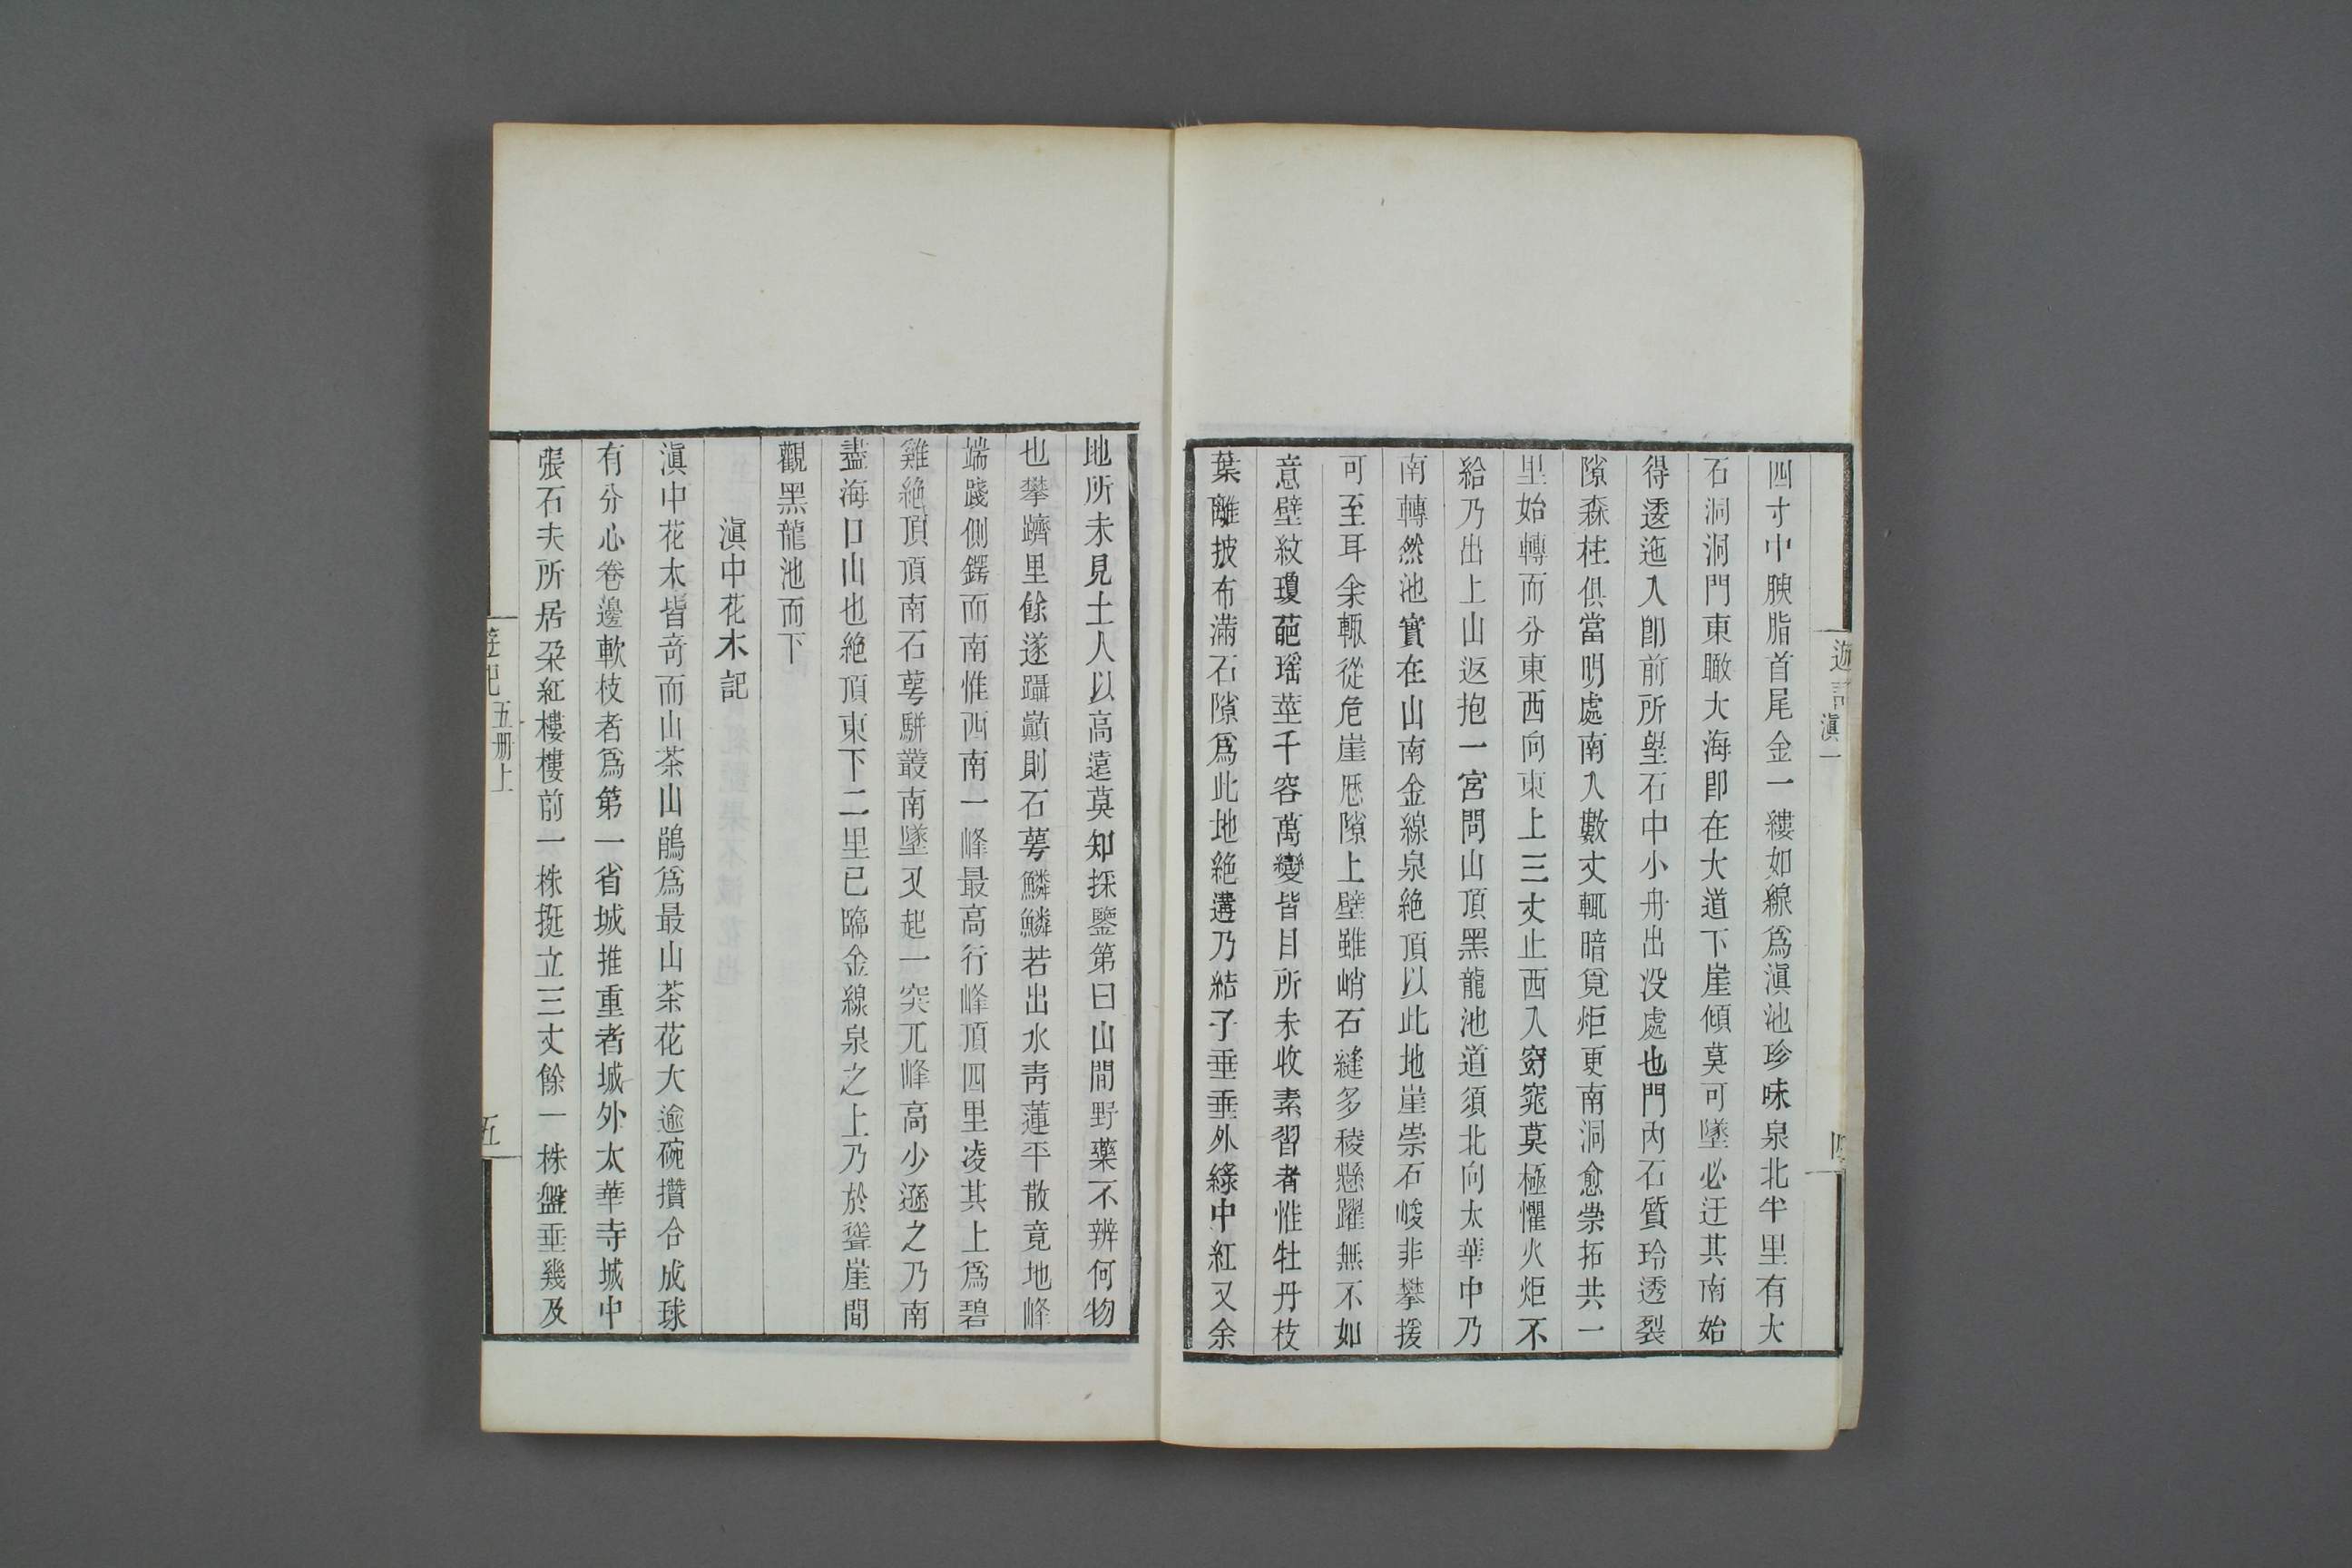 遊記 滇一
四寸中腴脂首尾金一縷如線爲滇池珍味泉北半里有大
石洞洞門東瞰大海卽在大道下崖傾莫可墜必迂其南始
得逶迤入卽前所望石中小舟出沒處也門內石質玲透裂
隙森柱俱當明處南入數丈輒暗覓炬更南洞愈崇拓共一
里始轉而分東西向東上三丈止西入窈窕莫極懼火炬不
給乃出上山返抱一宮問山頂黑龍池道須北向太華中乃
南轉然池實在山南金線泉絶頂以此地崖崇石峻非攀援
可至耳余輒從危崖厯隙上壁雖峭石縫多稜懸躍無不如
意壁紋瓊葩瑶莖千容萬變皆目所未收素習者惟牡丹枝
葉離披布滿石隙爲此地絶遘乃結子垂垂外綠中紅又余
地所未見土人以高遠莫知採鑒第曰山間野藥不辨何物
也攀躋里餘遂躡巔則石萼鱗鱗若出水靑蓮平散竟地峰
端踐側鍔而南惟西南一峰最高行峰頂四里凌其上爲碧
雞絶頂頂南石萼駢叢南墜又起一突兀峰高少遜之乃南
盡海口山也絶頂東下二里已臨金線泉之上乃於聳崖間
觀黑龍池而下
滇中花木記
滇中花木皆奇而山茶山鵑爲最山茶花大逾碗攢合成球
有分心卷邊軟枝者爲第一省城推重者城外太華寺城中
張石夫所居朶紅樓樓前一株挺立三丈餘一株盤垂幾及
遊記 五册上
五